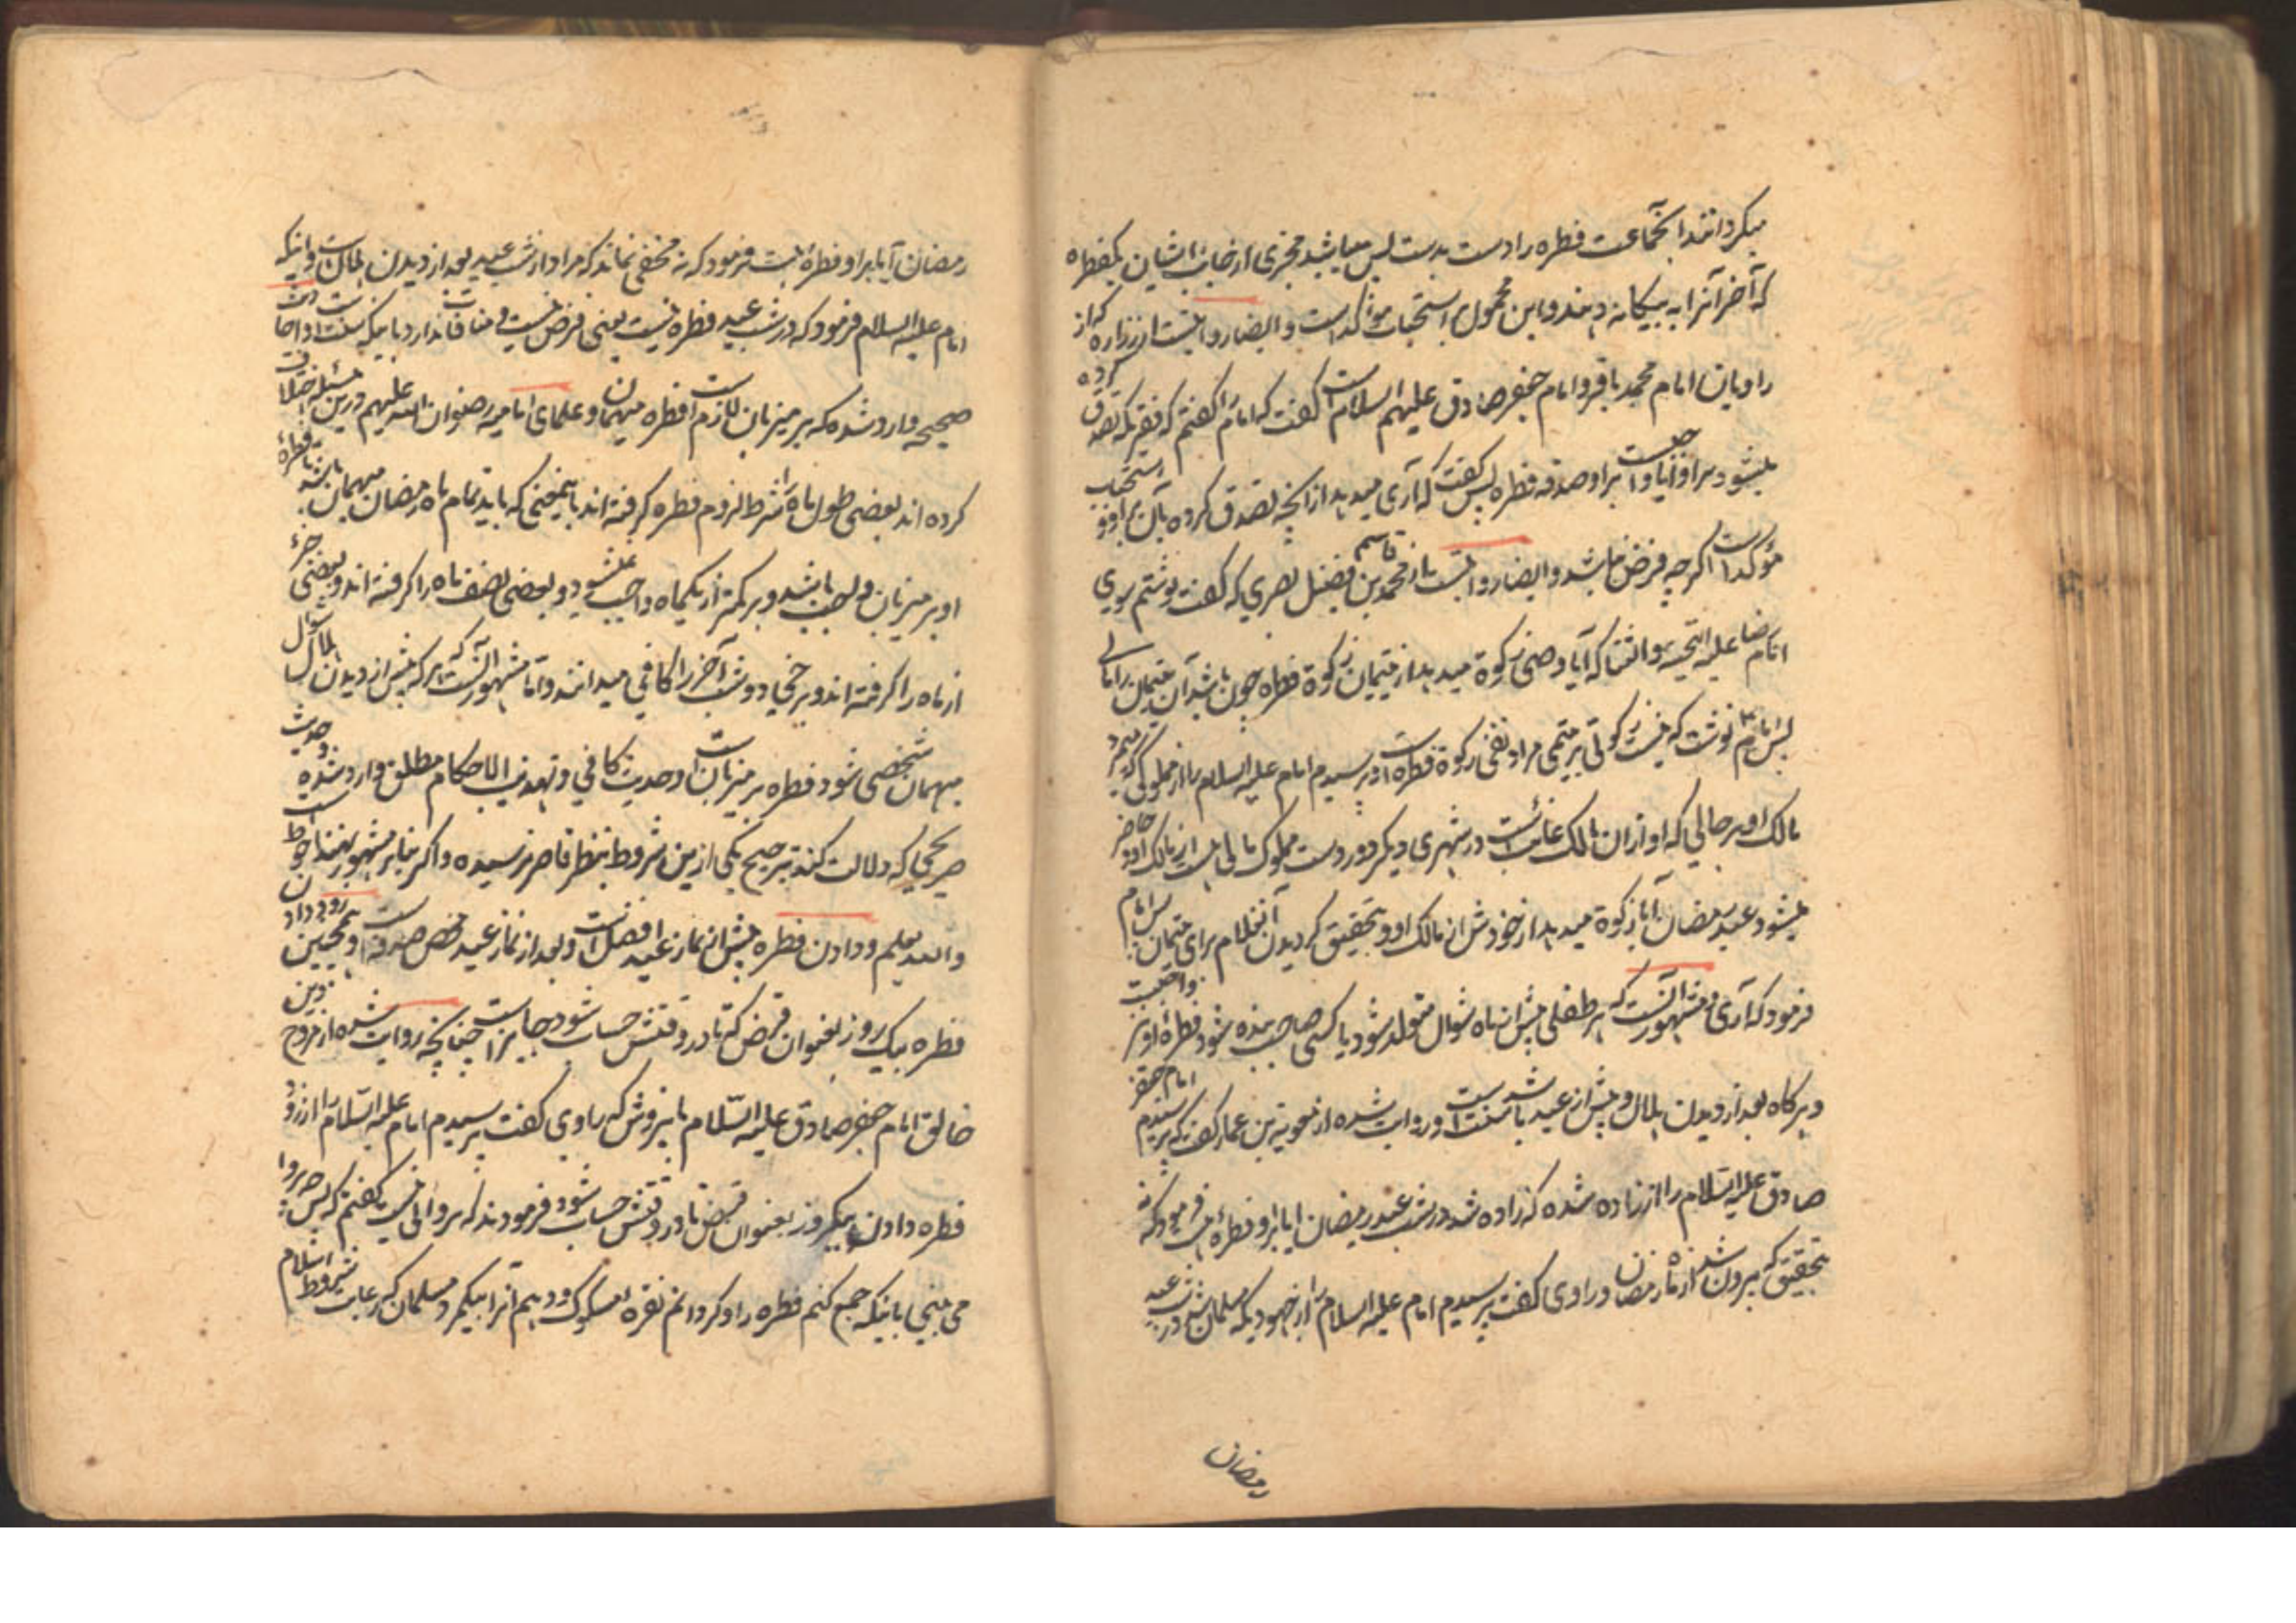 میکردانند انجماعت فطره را دست بدست پس میباشد مجزی از جانب ایشان یکفطره
که آخر آنرا به بیکانه دهند و این محمول بر استحباب مؤکد است و ایضا روایتست از زراره که از
راویان امام محمد باقر و امام جعفر صادق علیهم السلام است گفت که امام را گفتم که فقیریکه تصدق کرده
میشود براو آیا واجبست براو صدقه فطره پس گفت که آری میدهد از آنچه تصدق کرده بآن براو و استحباب
مؤکد است اگرچه فرض نباشد و ایضا روایتست از محمد بن قاسم بن فضیل بصری که گفت نوشتم بسوی
امام رضا علیه التحیه والثنا که آیا وصی زکوة میدهد از یتیمان زکوة فطره چون باشد آن یتیمان را مالی
پس امام نوشت که نیست زکوتی بر یتیمی مراد نفی زکوة فطره است و پرسیدم امام علیه السلام را از مملوکی که بمیرد
مالک او بر حالی که او از ان مالک غائبست در شهری دیگر و در دست مملوک مالی هست از مالک او و حاضر
میشود عید رمضان آیا زکوة میدهد از خودش از مال مالک او و بتحقیق کردیدن آنغلام برای یتیمان پس امام
فرمود که آری و مشهور آنست که هر طفلی پیش از ماه شوال متولد شود یا کسی صاحب بنده شود فطره او بر واجبست
و هرکاه بعد از دیدن هلال و پیش از عید باشد سنتست و روایت شده از معویه بن عمار که گفت که پرسیدم امام جعفر
صادق علیه السلام را از زاده شده که زاده شد در شب عید رمضان ایا براو فطره هست فرمود که نه
بتحقیق که بیرون شد از ماه رمضان و راوی گفت پرسیدم امام علیه السلام را از جهودیکه مسلمان شد در شب عید
رمضان
رمضان آیا براو فطره هست فرمود که نه مخفی نماند که مراد از شب عید بعد از دیدن هلال است و اینکه
امام علیه السلام فرمود که در شب عید فطره نیست یعنی فرض نیست و منافات ندارد با اینکه سنت است و احادیث
صحیحه وارد شده که بر میزبان لازم است فطره میهمان و علمای امامیه رضوان الله علیهم درین مسئله اختلاف
کرده اند بعضی طول ماه را شرط لزوم فطره کرفته اند باینمعنی که باید تمام ماه رمضان میهمان باشد تا فطره
او بر میزبان واجب باشد و بر کمتر از یکماه واجب نمیشود و بعضی نصف ماه را کرفته اند و بعضی جزء
از ماه را کرفته اند و برخی دو شب آخر را کافی میدانند و اما مشهور آنست که هرکه پیش از دیدن هلال شوال
میهمان شخصی شود فطره بر میزبان است و حدیث کافی و تهذیب الاحکام مطلق وارد شده و حدیث
صریحی که دلالت کند بترجیح یکی از این شروط بنظر قاصر نرسیده و اگر بنابر مشهور بدهند احوط است
والله یعلم و دادن فطره پیش از نماز عید افضل است و بعد از نماز عید محض صدقه است و همچنین بیرون دادن
فطره بیک روز بعنوان قرض که تا در وقتش حساب شود جایز است چنانچه روایت شده از مروج دین
خالق امام جعفر صادق علیه السلام باینروش که راوی گفت پرسیدم امام علیه السلام را از زود
فطره دادن بیکروز بعنوان قرض تا در وقتش حساب شود فرمودند که پروا نیست گفتم که پس چه پروا
می بینی باینکه جمع کنم فطره را و کردانم نقره مسکوک و دهم آنرا بیکمرد مسلمان که رعایت شروط اسلام